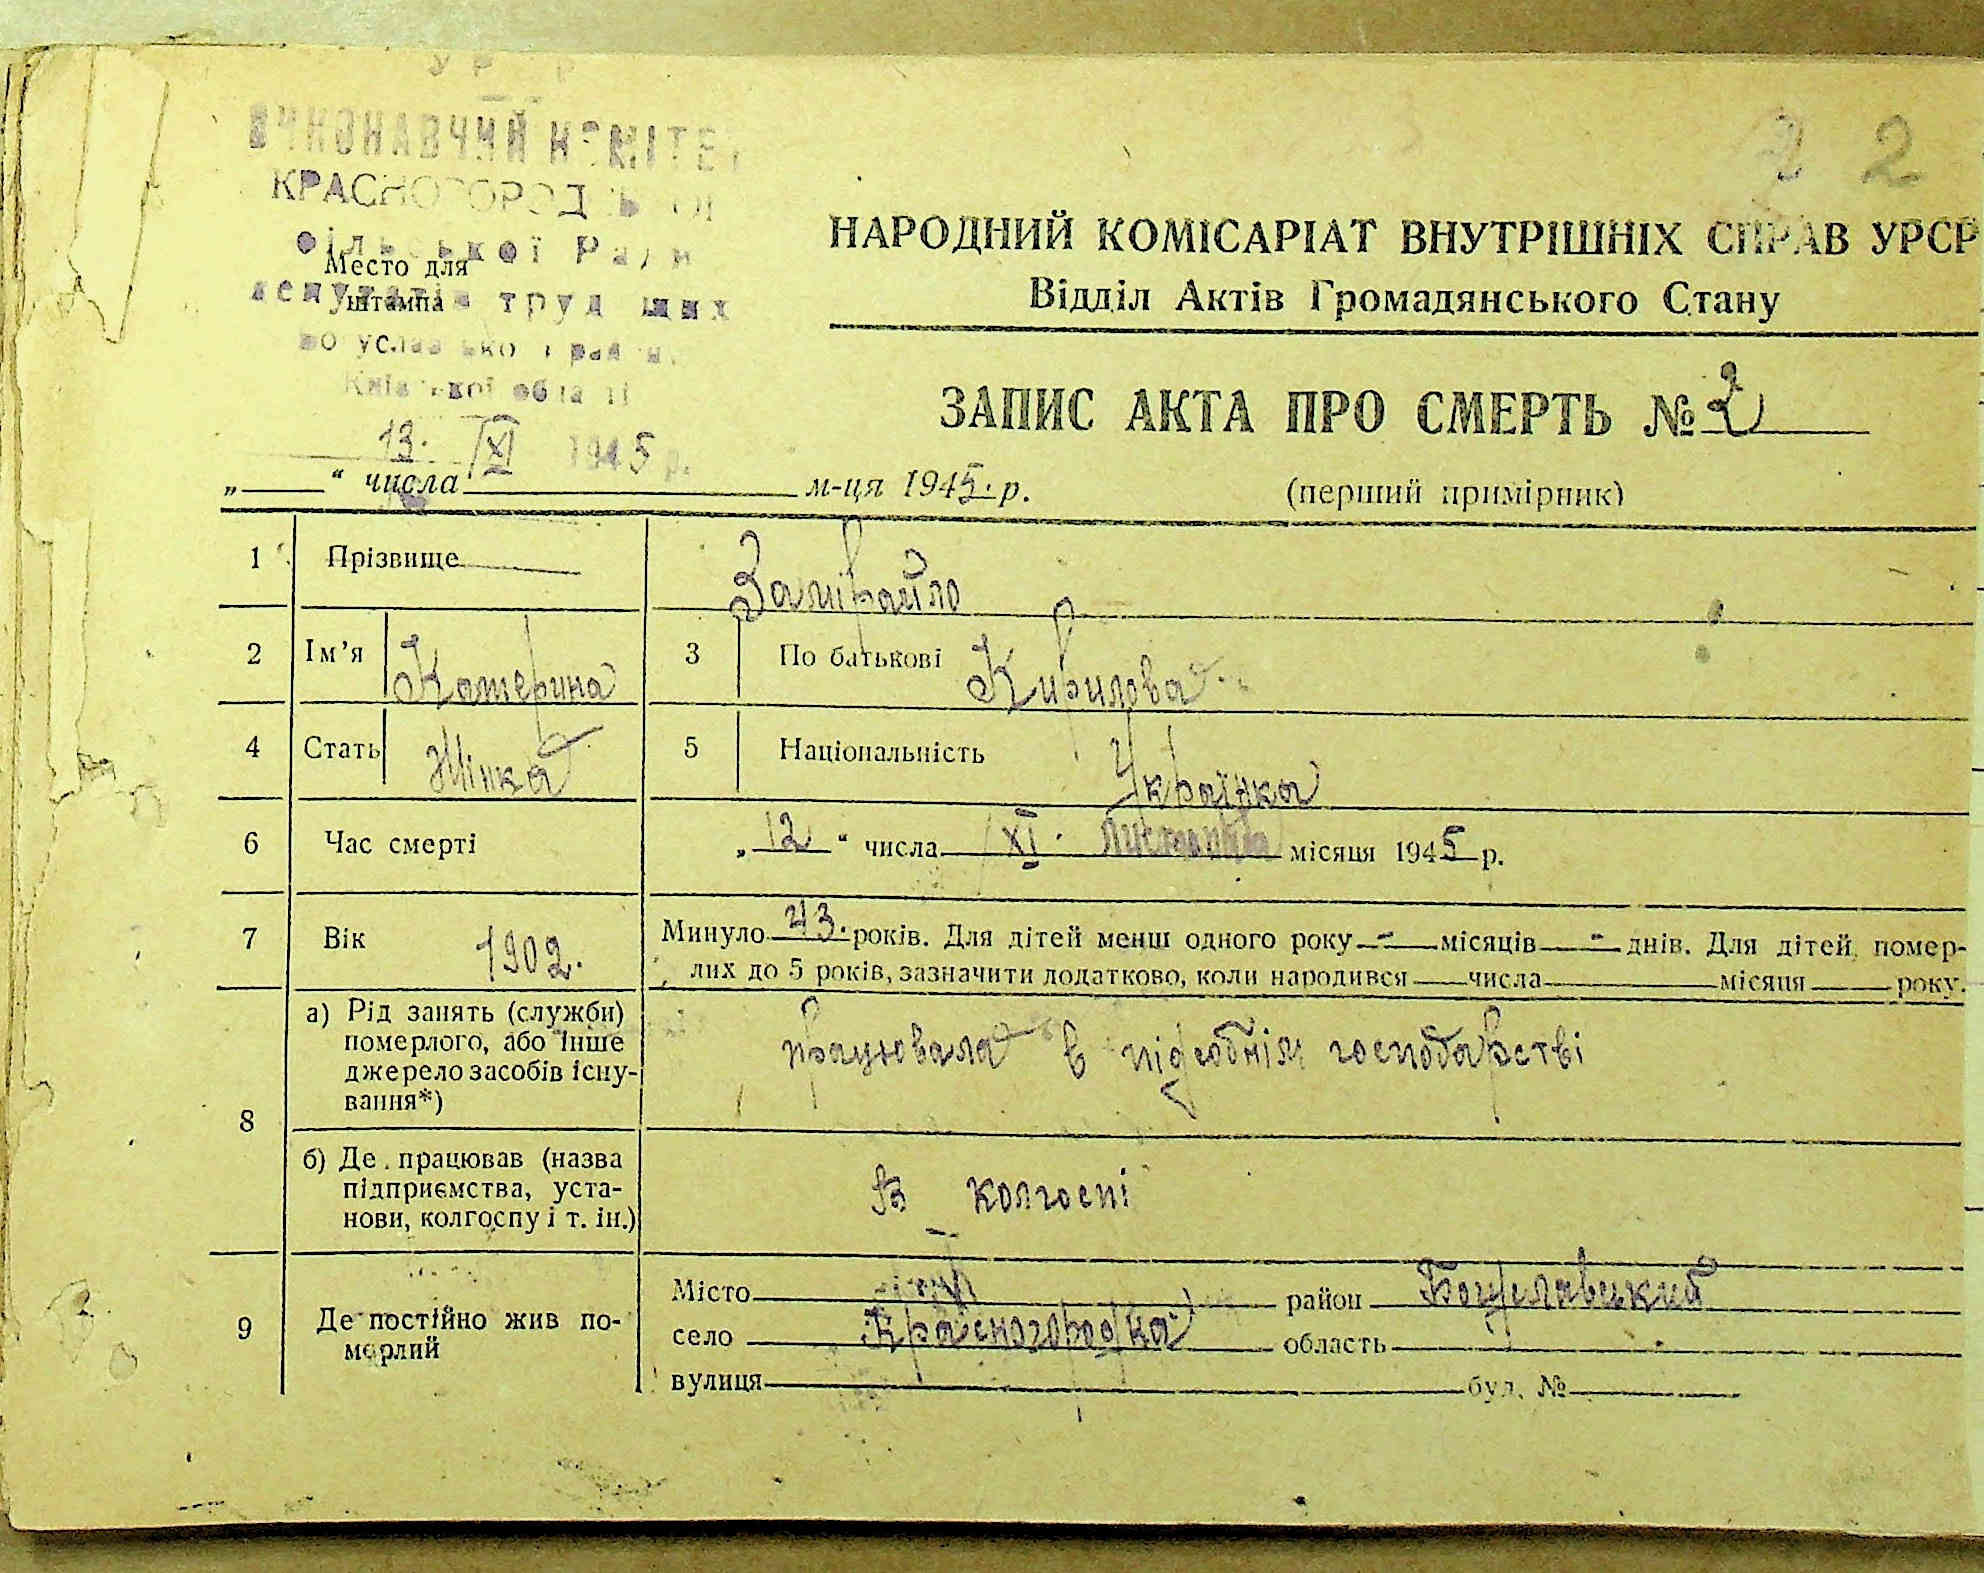 2
ВИКОНАВЧИЙ КОМІТЕ
КРАСНОГОРОДСЬКОЇ
сільської Ради
депутатів трудящих
Богуславського району
Київської області
Место для
штампа
13. XI 1945 р.
НАРОДНИЙ КОМІСАРІАТ ВНУТРІШНІХ СПРАВ УРСР
Відділ Актів Громадянського Стану
ЗАПИС АКТА ПРО СМЕРТЬ № 2
„ “ числа м-ця 1945. р. (перший примірник)
1 Прізвище Замірайло
2 Ім’я Катерина 3 По батькові Кирилова
4 Стать Жінка 5 Національність Українка
6 Час смерті „12“ числа XI. листопада місяця 1945 р.
7 Вік 1902. Минуло 43. років. Для дітей менш одного року - місяців - днів. Для дітей, помер-
лих до 5 років, зазначити додатково, коли народився числа місяця року.
8 а) Рід занять (служби)
померлого, або інше
джерело засобів існу-
вання*)
працювала в підсобнім господарстві
б) Де працював (назва
підприємства, уста-
нови, колгоспу і т. ін.)
В колгоспі
9 Де постійно жив по-
мерлий
Місто район Богуславецкий
село Красногородка область
вулиця буд. №